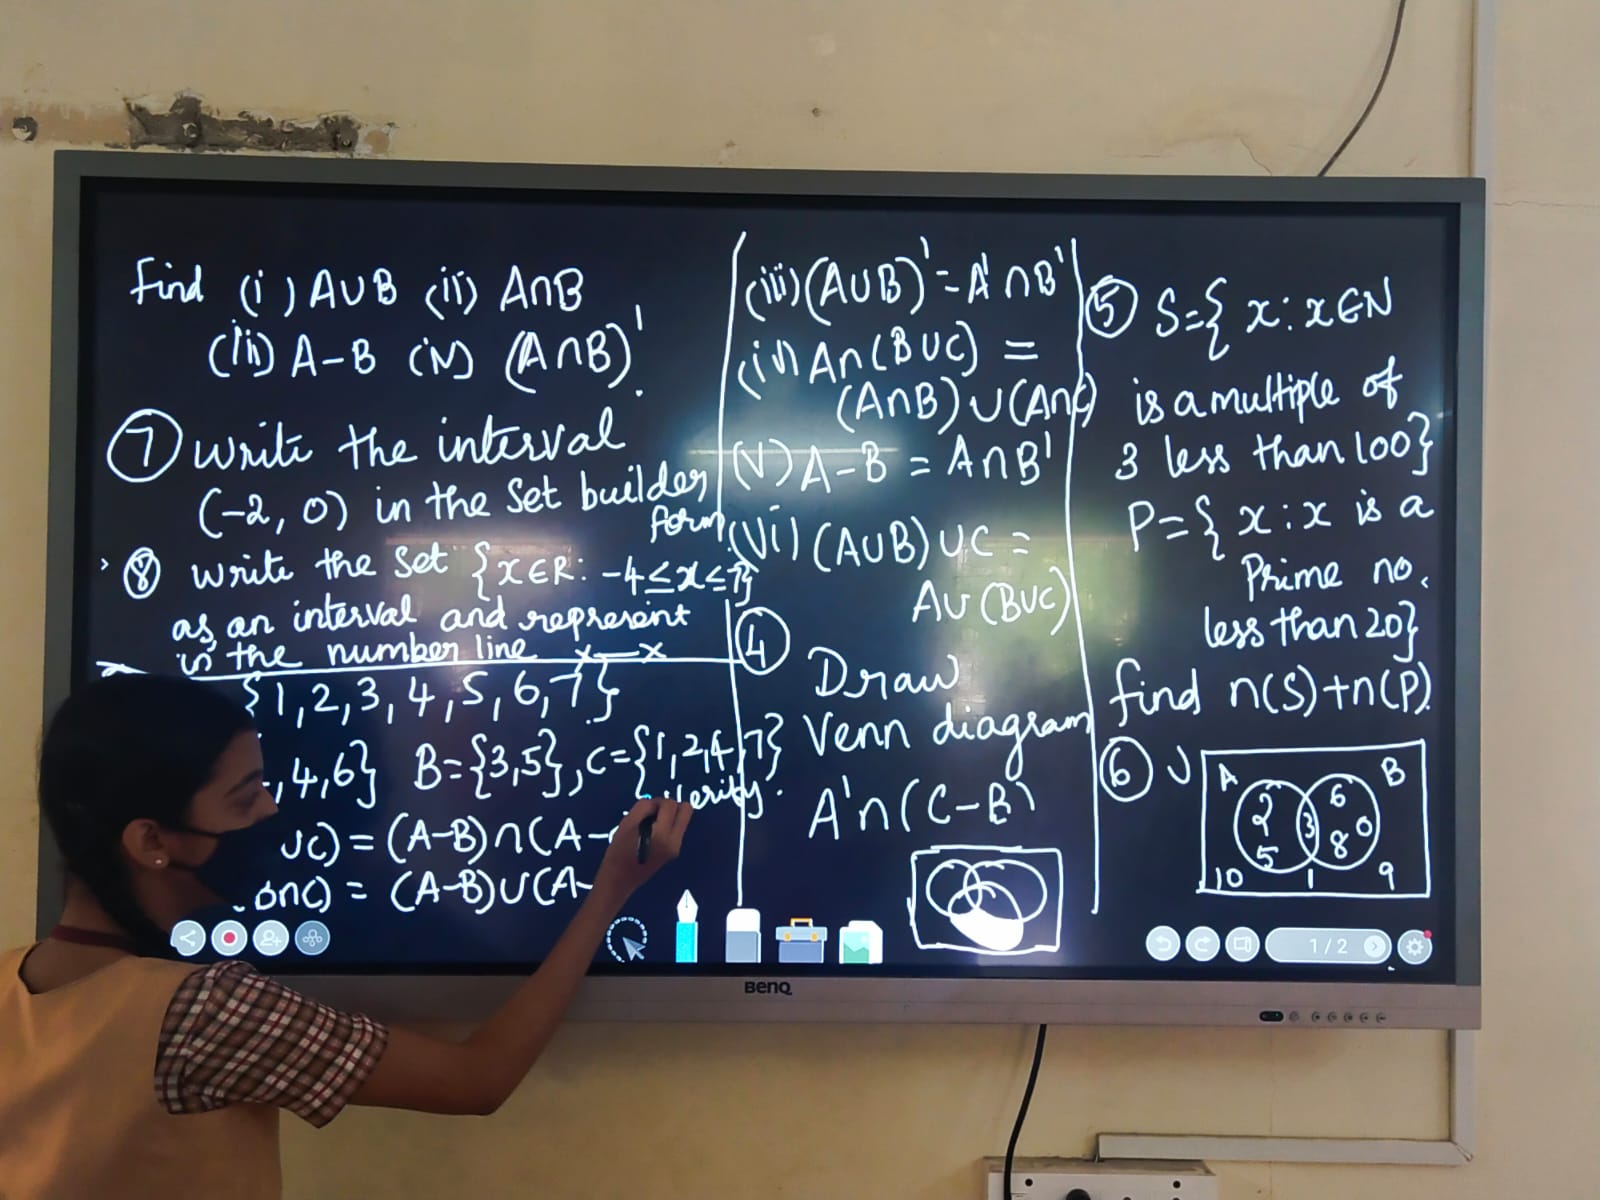 Find (i) A∪B (ii) A∩B
(iii) A-B (iv) (A∩B)'.
7 Write the interval
(-2, 0) in the Set builder
form
8 Write the Set {x∈R: -4≤x≤7}
as an interval and represent
in the number line x—x
{1,2,3,4,5,6,7}
,4,6} B={3,5}, C={1,2,4,7}
Verify.
∪C) = (A-B)∩(A-
∩C) = (A-B)∪(A-
(iii) (A∪B)' = A'∩B'
(iv) A∩(B∪C) =
(A∩B)∪(A∩C)
(V) A-B = A∩B'
(Vi) (A∪B)∪C =
A∪(B∪C)
4 Draw
Venn diagram
A'∩(C-B)
5 S={x:x∈N
is a multiple of
3 less than 100}
P={x:x is a
Prime no.
less than 20}
find n(S)+n(P).
6 U
A B
2 6
3 0
5 8
10 1 9
1/2
BenQ